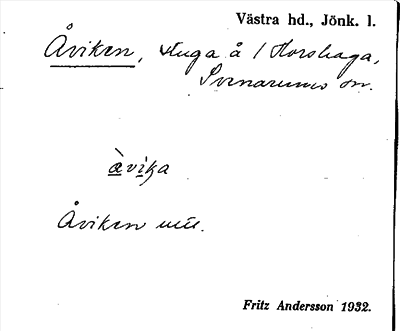 Västra hd., Jönk. l.
Åviken, stuga å / Horshaga,
Svenarums sn.
àvika
Åviken
Fritz Andersson 1932.